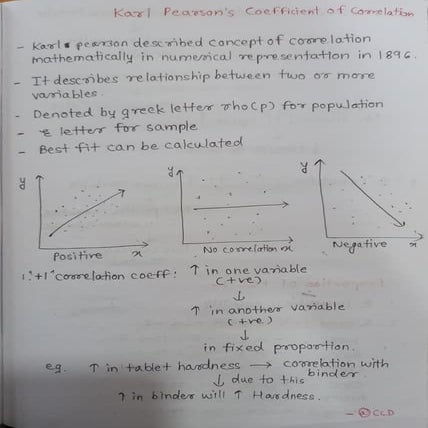 Karl Pearson's Coefficient of Correlation
- Karl pearson described concept of correlation
mathematically in numerical representation in 1896.
- It describes relationship between two or more
variables.
- Denoted by greek letter rho(p) for population
- r letter for sample
- Best fit can be calculated
y y y
Positive x No correlation x Negative x
"+1" correlation coeff: ↑ in one variable
(+ve)
↓
↑ in another variable
(+ve)
↓
in fixed proportion.
eg. ↑ in tablet hardness → correlation with
binder
↓ due to this
↑ in binder will ↑ Hardness.